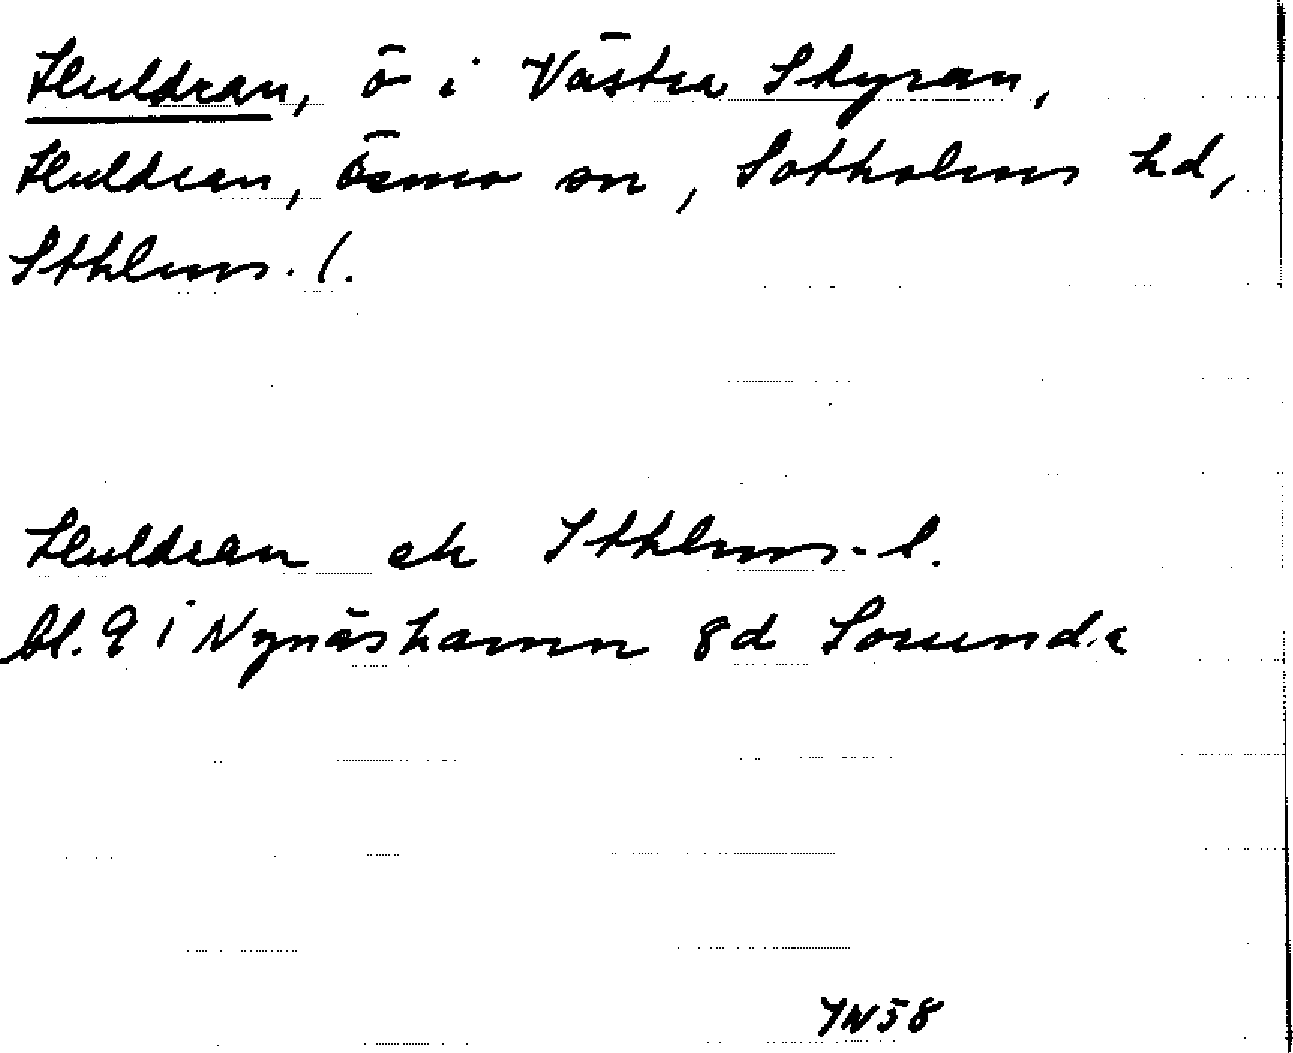 Huldran, ö i Västra Styran,
Huldran, Ösmo sn, Sotholms hd,
Sthlms. l.
Huldran ek Sthlms. l.
bl. 9 i Nynäshamn 8d Sorunda
YN58